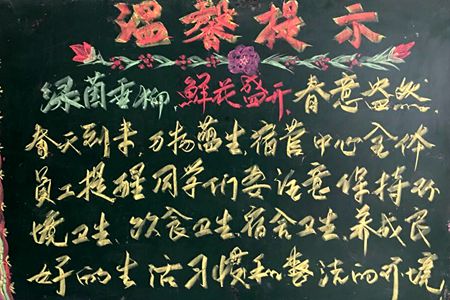 温馨提示
绿茵垂柳、鲜花盛开、春意盎然
春天到来，万物蕴生，宿管中心全体
员工提醒同学们要注意保持环
境卫生、饮食卫生、宿舍卫生、养成良
好的生活习惯和整洁的环境